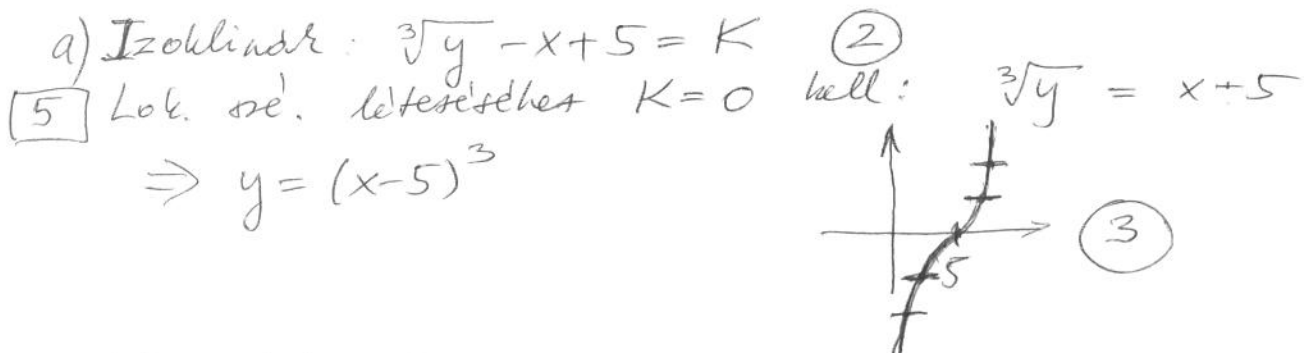 a) Izoklinák: ∛y - x + 5 = K ②
5 Lok. szé. létezéséhez K = 0 kell: ∛y = x - 5
⇒ y = (x-5)³
5
③